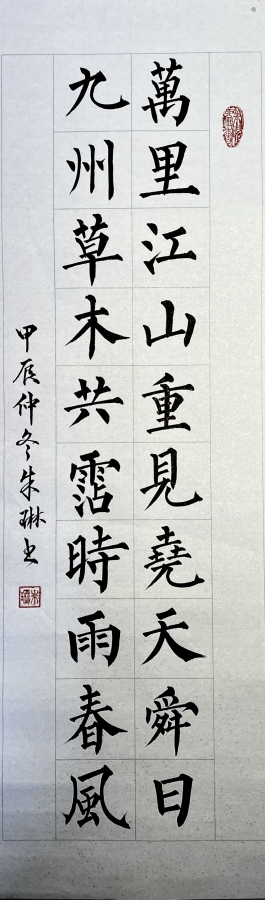 萬里江山重見堯天舜日
九州草木共霑時雨春風
甲辰仲冬朱琳书